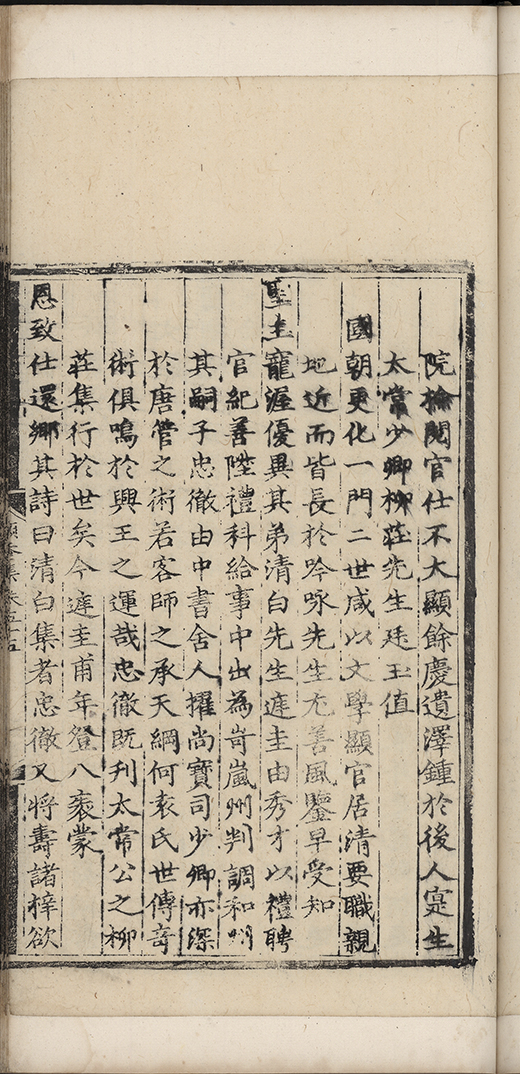 院檢閱官仕不大顯餘慶遺澤鍾於後人寔生
太常少卿柳莊先生珽玉值
國朝更化一門二世咸以文學顯官居清要職親
地近而皆長於吟咏先生尤善風鑒早受知
聖主寵渥優異其弟清白先生珽圭由秀才以禮聘
官紀善陞禮科給事中出為岢嵐州判調和州
其嗣子忠徹由中書舍人擢尚寶司少卿亦深
於唐管之術若客師之承天綱何袁氏世傳竒
術俱鳴於興王之運哉忠徹既刋太常公之柳
莊集行於世矣今珽圭甫年登八袠蒙
恩致仕還鄉其詩曰清白集者忠徹又將壽諸梓欲
集卷五